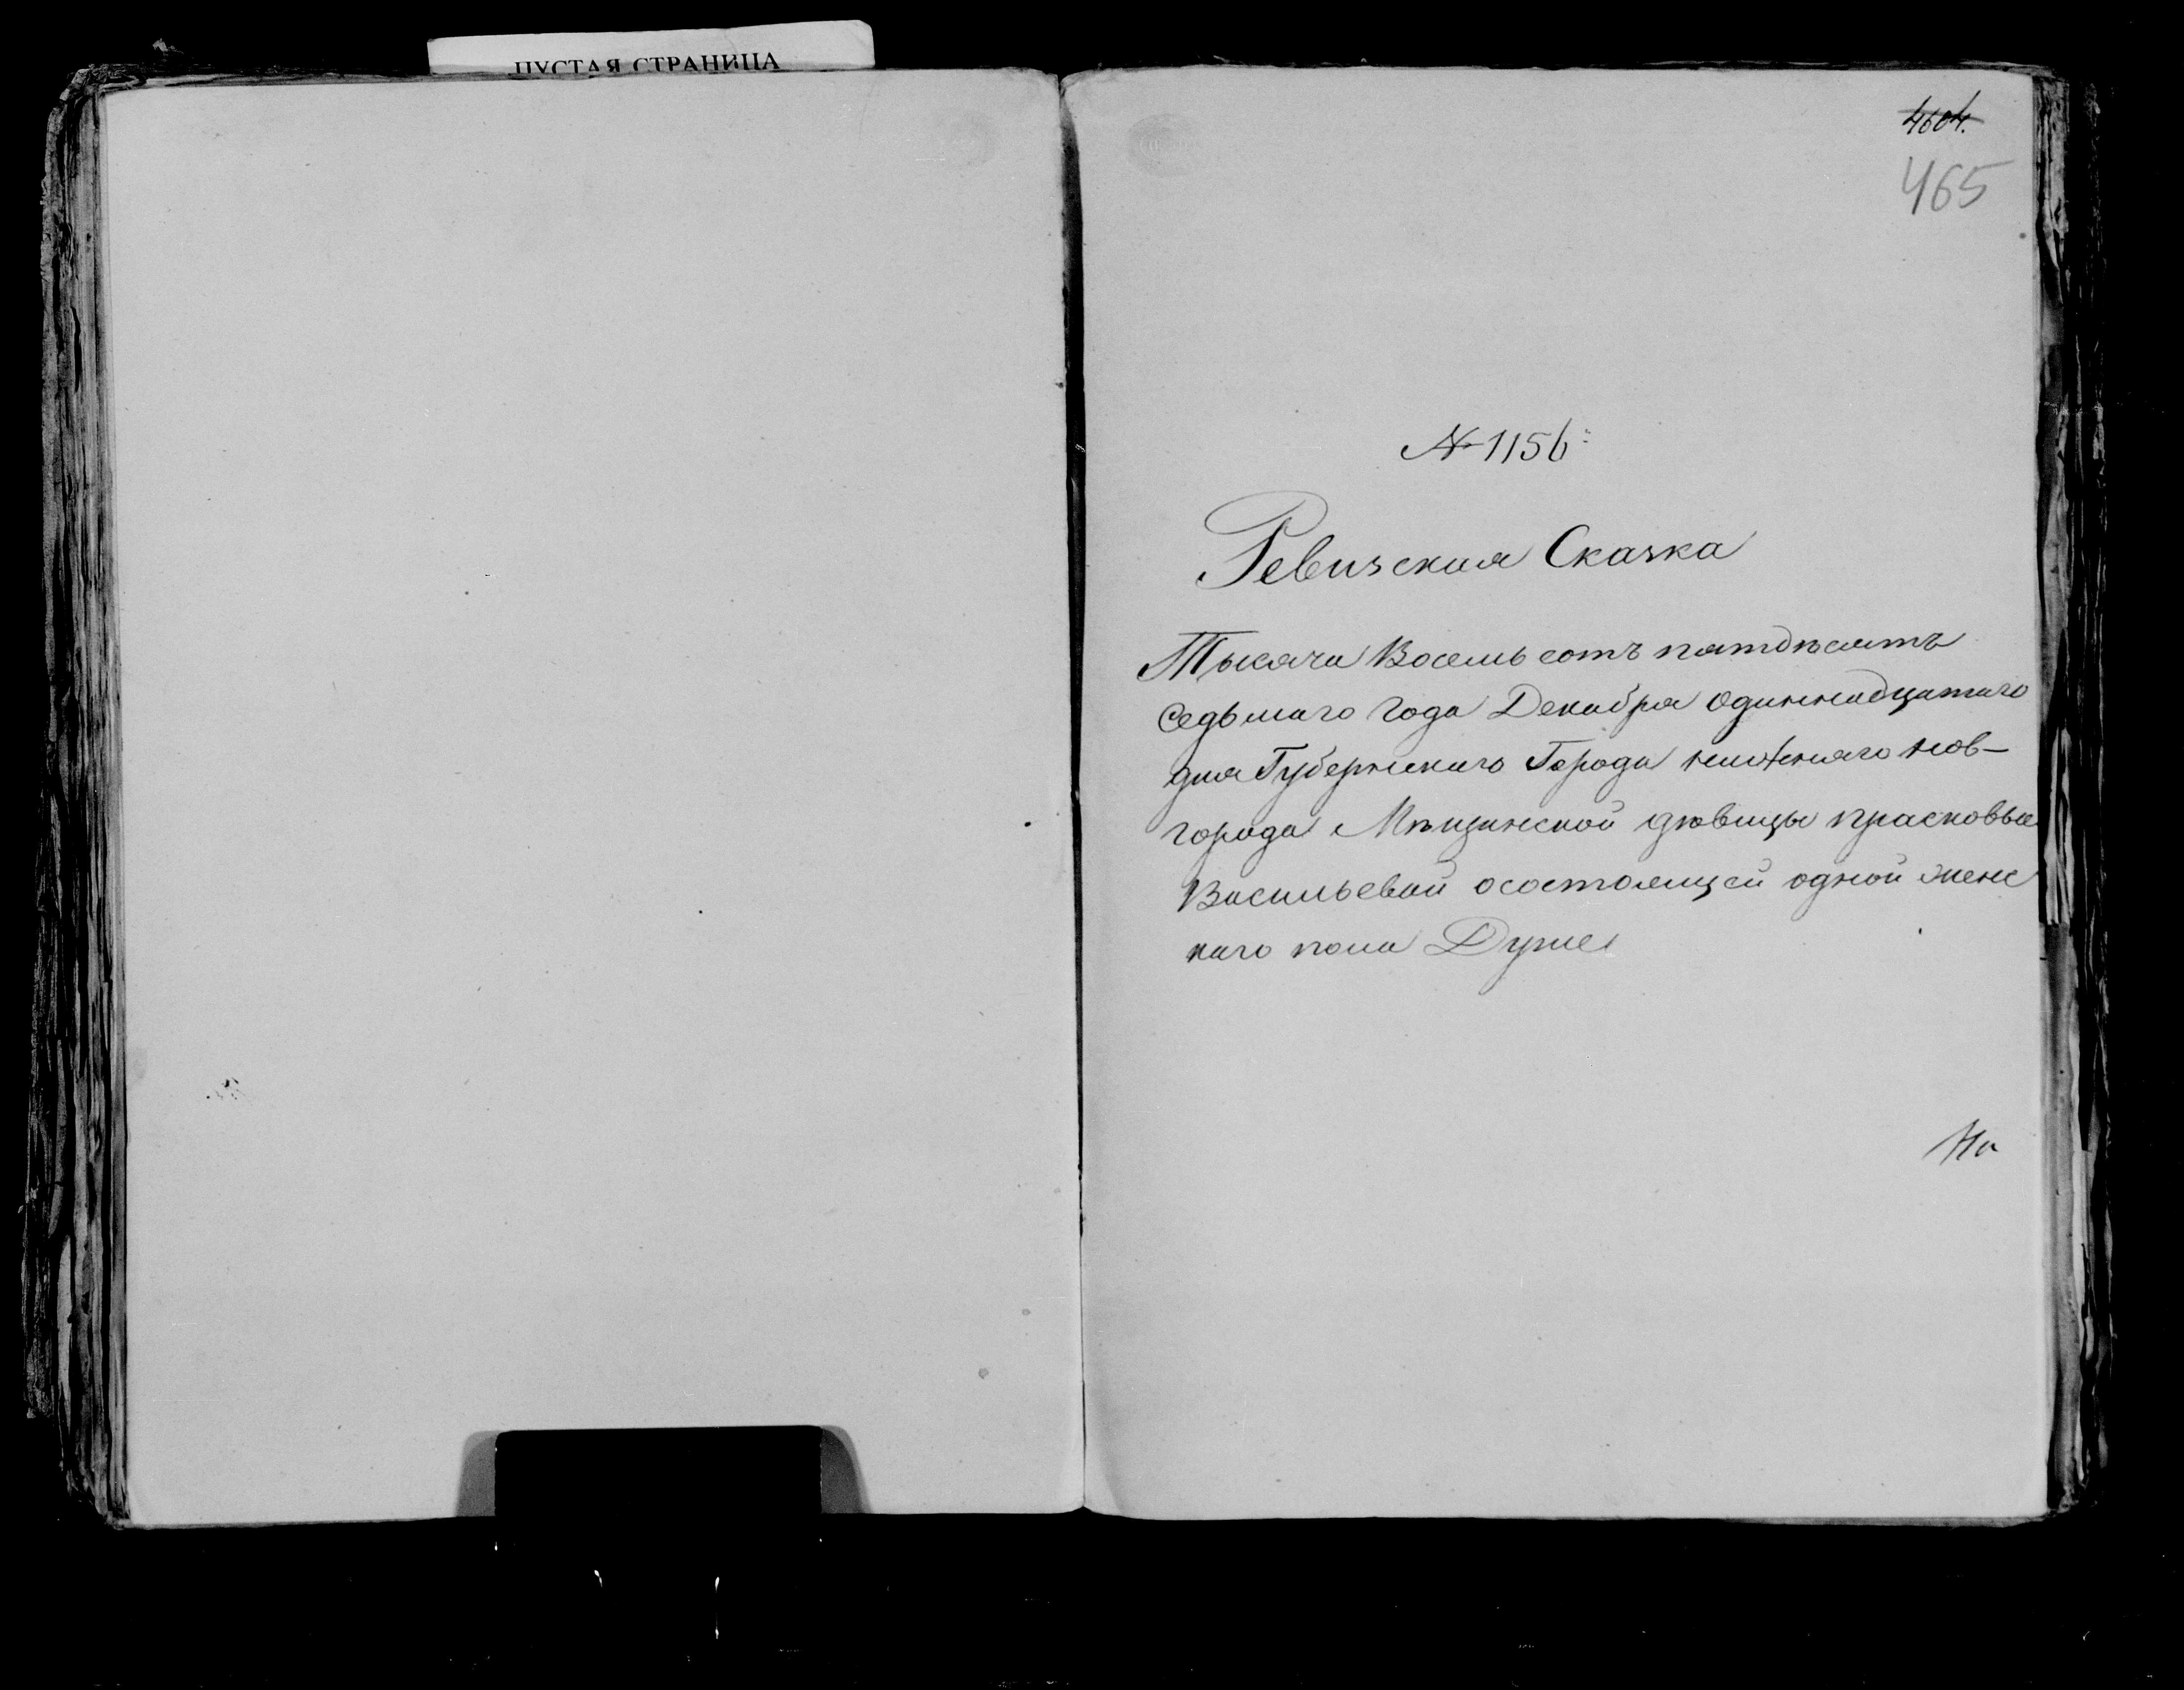 ПУСТАЯ СТРАНИЦА
4604.
465
№ 1156й
Ревизская Сказка
Тысяча Восемь сотъ пятдѣсятъ
Седьмаго Года Декабря Одиннадцатаго
дня Губернскаго Города нижняго нов-
города Мѣщинской дѣвицы прасковьи
Васильевой осостоящей одной женс
каго пола Душе
На